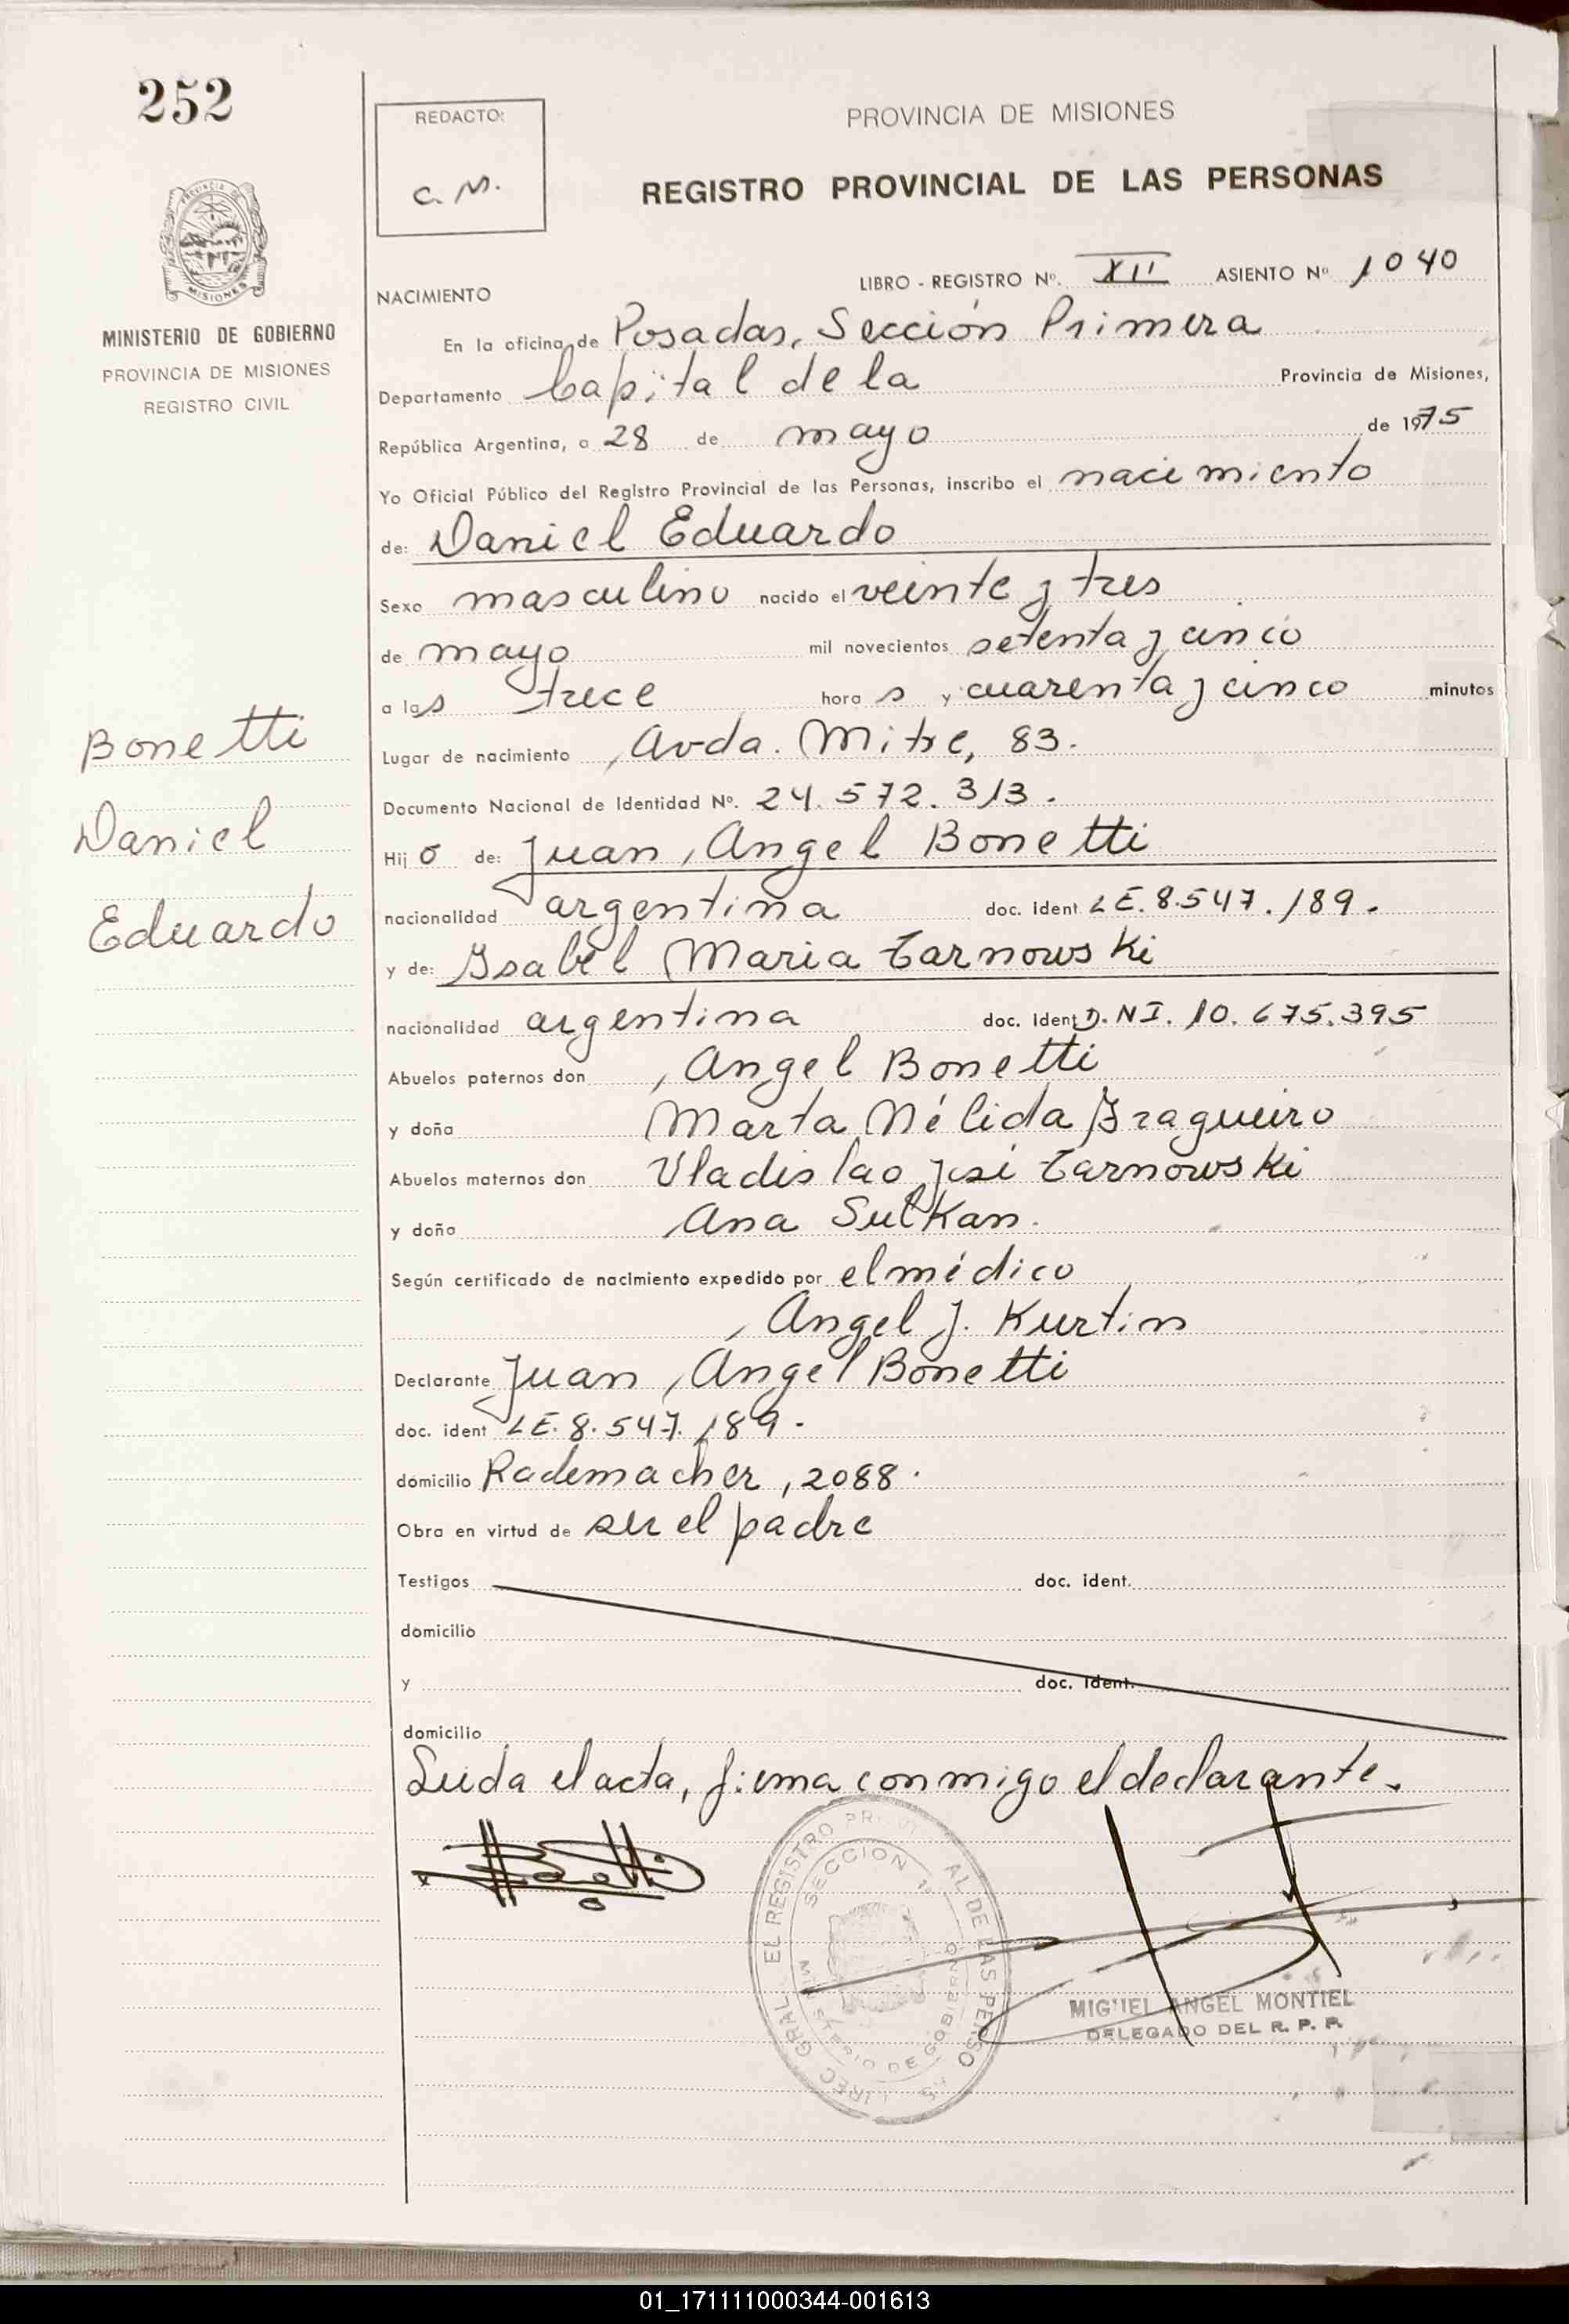 252
REDACTO:
C. M.
PROVINCIA DE MISIONES
REGISTRO PROVINCIAL DE LAS PERSONAS
MISIONES
MINISTERIO DE GOBIERNO
PROVINCIA DE MISIONES
REGISTRO CIVIL
LIBRO - REGISTRO Nº. XII ASIENTO Nº 1040
NACIMIENTO
En la oficina de Posadas, Sección Primera
Departamento Capital de la Provincia de Misiones,
República Argentina, a 28 de mayo de 1975
Yo Oficial Público del Registro Provincial de las Personas, inscribo el nacimiento
de: Daniel Eduardo
Sexo masculino nacido el veinte y tres
de mayo mil novecientos setenta y cinco
a las trece horas y cuarenta y cinco minutos
Lugar de nacimiento Avda. Mitre, 83.
Documento Nacional de Identidad Nº. 24.572.313.
Hijo de: Juan Angel Bonetti
nacionalidad argentina doc. ident LE. 8.547.189.
y de: Isabel Maria Tarnowski
nacionalidad argentina doc. ident D.NI. 10.675.395
Abuelos paternos don Angel Bonetti
y doña Marta Nélida Bragueiro
Abuelos maternos don Vladislao José Tarnowski
y doña Ana Sulkan.
Según certificado de nacimiento expedido por el médico
Angel J. Kurtin
Declarante Juan Angel Bonetti
doc. ident LE. 8.547.189.
domicilio Rademacher, 2088.
Obra en virtud de ser el padre
Testigos doc. ident.
domicilio
y doc. ident.
domicilio
Leida el acta, firma conmigo el declarante.
Bonetti
Daniel
Eduardo
EL REGISTRO AL DE LAS PERSO
SECCION 1ª
DE GOBIERNO
GRAL.
MIGUEL ANGEL MONTIEL
DELEGADO DEL R. P. P.
01_171111000344-001613